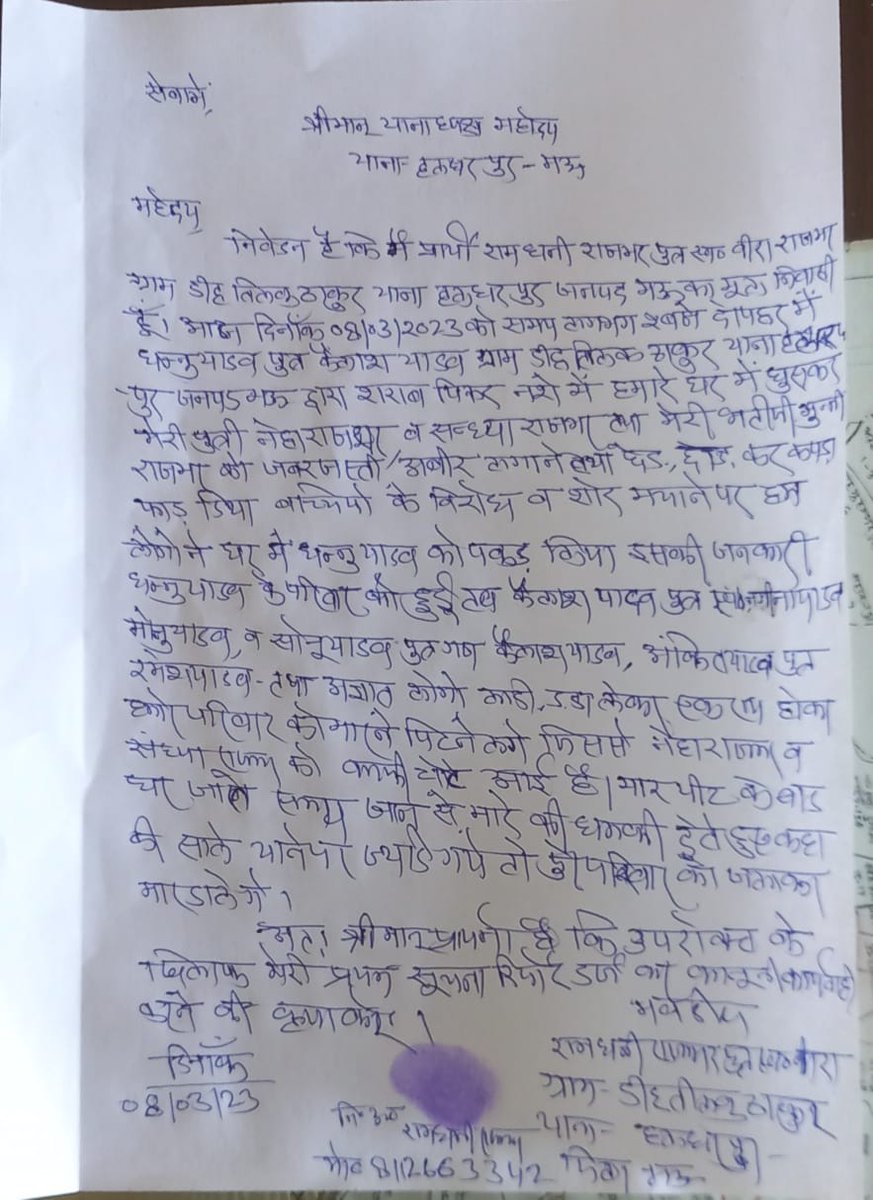 सेवामें,
श्रीमान थानाध्यक्ष महोदय
थाना- हलधरपुर - मऊ
महोदय
निवेदन है कि मैं प्रार्थी रामधनी राजभर पुत्र स्व० वीरा राजभर
ग्राम डीह तिलक ठाकुर थाना हलधरपुर जनपद मऊ का मूल निवासी
हूँ। आज दिनाँक 08/03/2023 को समय लगभग बजे दोपहर में
धन्नु यादव पुत्र कैलाश यादव ग्राम डीह तिलक ठाकुर थाना हलधर
पुर जनपद मऊ द्वारा शराब पिकर नशे में हमारे घर में घुसकर
मेरी पुत्री नेहा राजभर व सन्ध्या राजभर तथा मेरी भतीजी मुन्नी
राजभर को जबरजस्ती अबीर लगाने तथा छेड़, छाड़, कर कपड़ा
फाड़ दिया बच्चियो के विरोध व शोर मचाने पर हम
लोगो ने घर में धन्नु यादव को पकड़ लिया इसकी जनकारी
धन्नु यादव के परिवार को हुई तब कैलाश यादव पुत्र स्व०
मोनु यादव, व सोनू यादव पुत्रगण कैलाश यादव, अंकित यादव पुत्र
रमेश यादव - तथा अज्ञात लोगो लाठी, डंडा लेकर एक राय होकर
परिवार को मारने पिटने लगे जिससे नेहा राजभर व
संध्या राजभर को काफी चोटे आई है। मारपीट के बाद
घर जाते समय जान से मारने की धमकी देते हुए कहा
की साले थाने पर गये तो परिवार को जलाकर
मार डालेगे।
अतः श्रीमान प्रार्थना है कि उपरोक्त के
खिलाफ मेरी प्रथम सूचना रिपोर्ट दर्ज कर कानूनी कार्यवाही
करने की कृपा करे।
भवदीय
दिनाँक
08/03/23
रामधनी राजभर पुत्र स्व० वीरा
ग्राम- डीह तिलक ठाकुर
नि० अ०
रामधनी राजभर
थाना- हलधरपुर -
मो० 8112663342
जिला मऊ